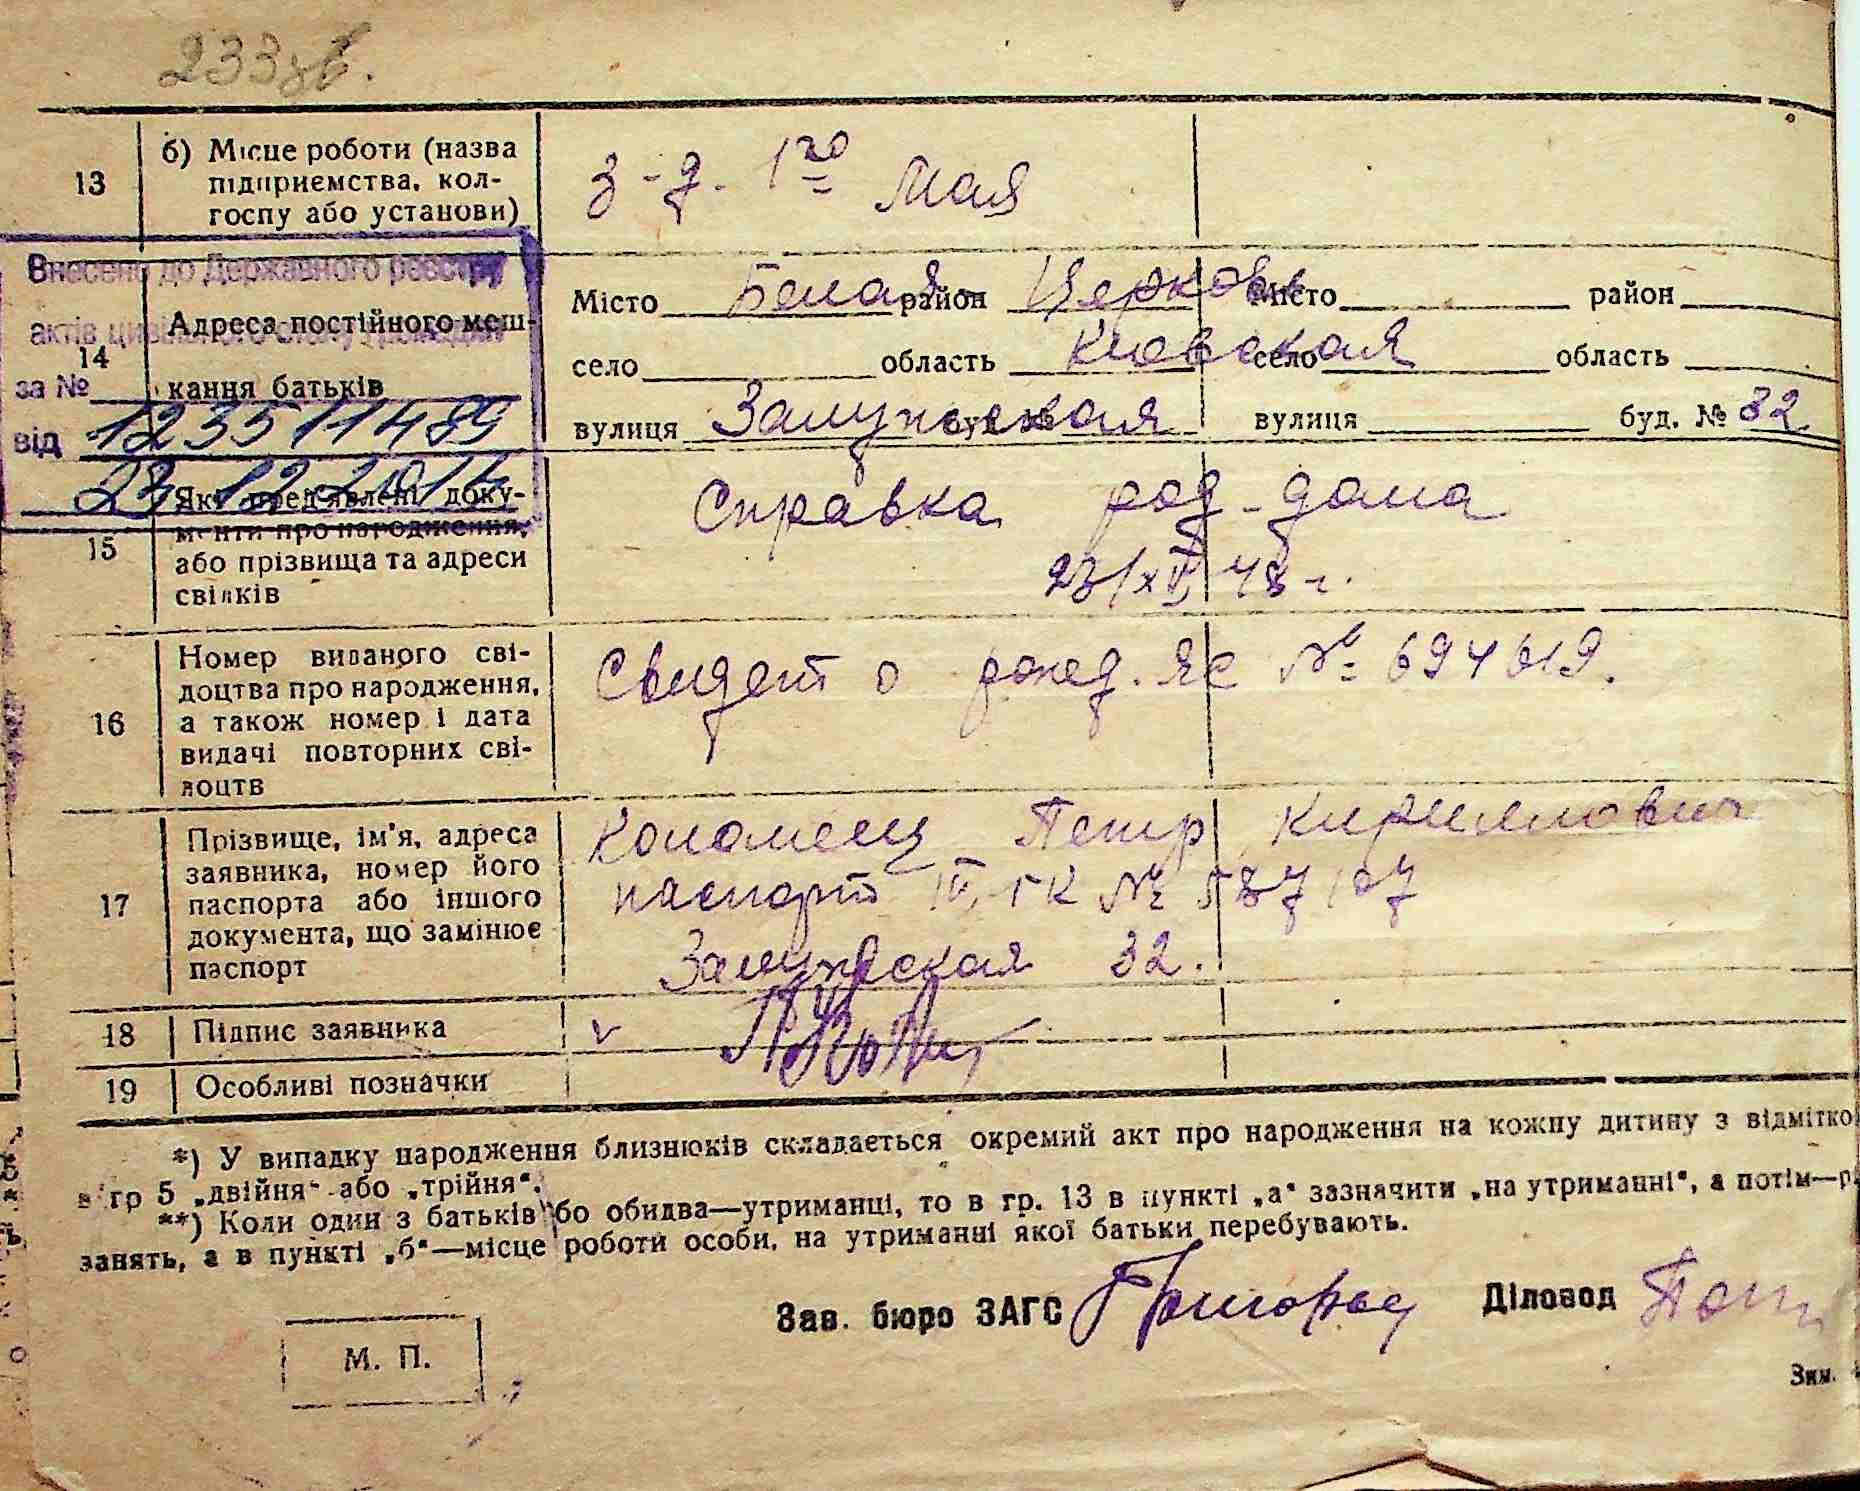 233 зв.
13
б) Місце роботи (назва
підприємства, кол-
госпу або установи)
З-д. 1го Мая
Внесено до Державного реєстру
актів цивільного стану громадян
за № 12351148
від 23 12 201
14
Адреса постійного меш-
кання батьків
Місто Белая район Церковь Місто район
село область Киевская село область
вулиця Залужская вулиця буд. № 32
15
Які пред'явлені доку-
менти про народження,
або прізвища та адреси
свідків
Справка род-дома
23/XI 48 г.
16
Номер виданого сві-
доцтва про народження,
а також номер і дата
видачі повторних сві-
доцтв
Свидет о рожд. ЯС № 694619.
17
Прізвище, ім'я, адреса
заявника, номер його
паспорта або іншого
документа, що замінює
паспорт
Коломеец Петр Кириллович
паспорт IV ГК № 587107
Залужская 32.
18
Підпис заявника
v
19
Особливі позначки
*) У випадку народження близнюків складається окремий акт про народження на кожну дитину з відмітко
в гр 5 „двійня“ або „трійня“.
**) Коли один з батьків або обидва—утриманці, то в гр. 13 в пункті „а“ зазначити „на утриманні“, а потім—р
занять, а в пункті „б“—місце роботи особи, на утриманні якої батьки перебувають.
Зав. бюро ЗАГС Діловод
М. П.
Зим.